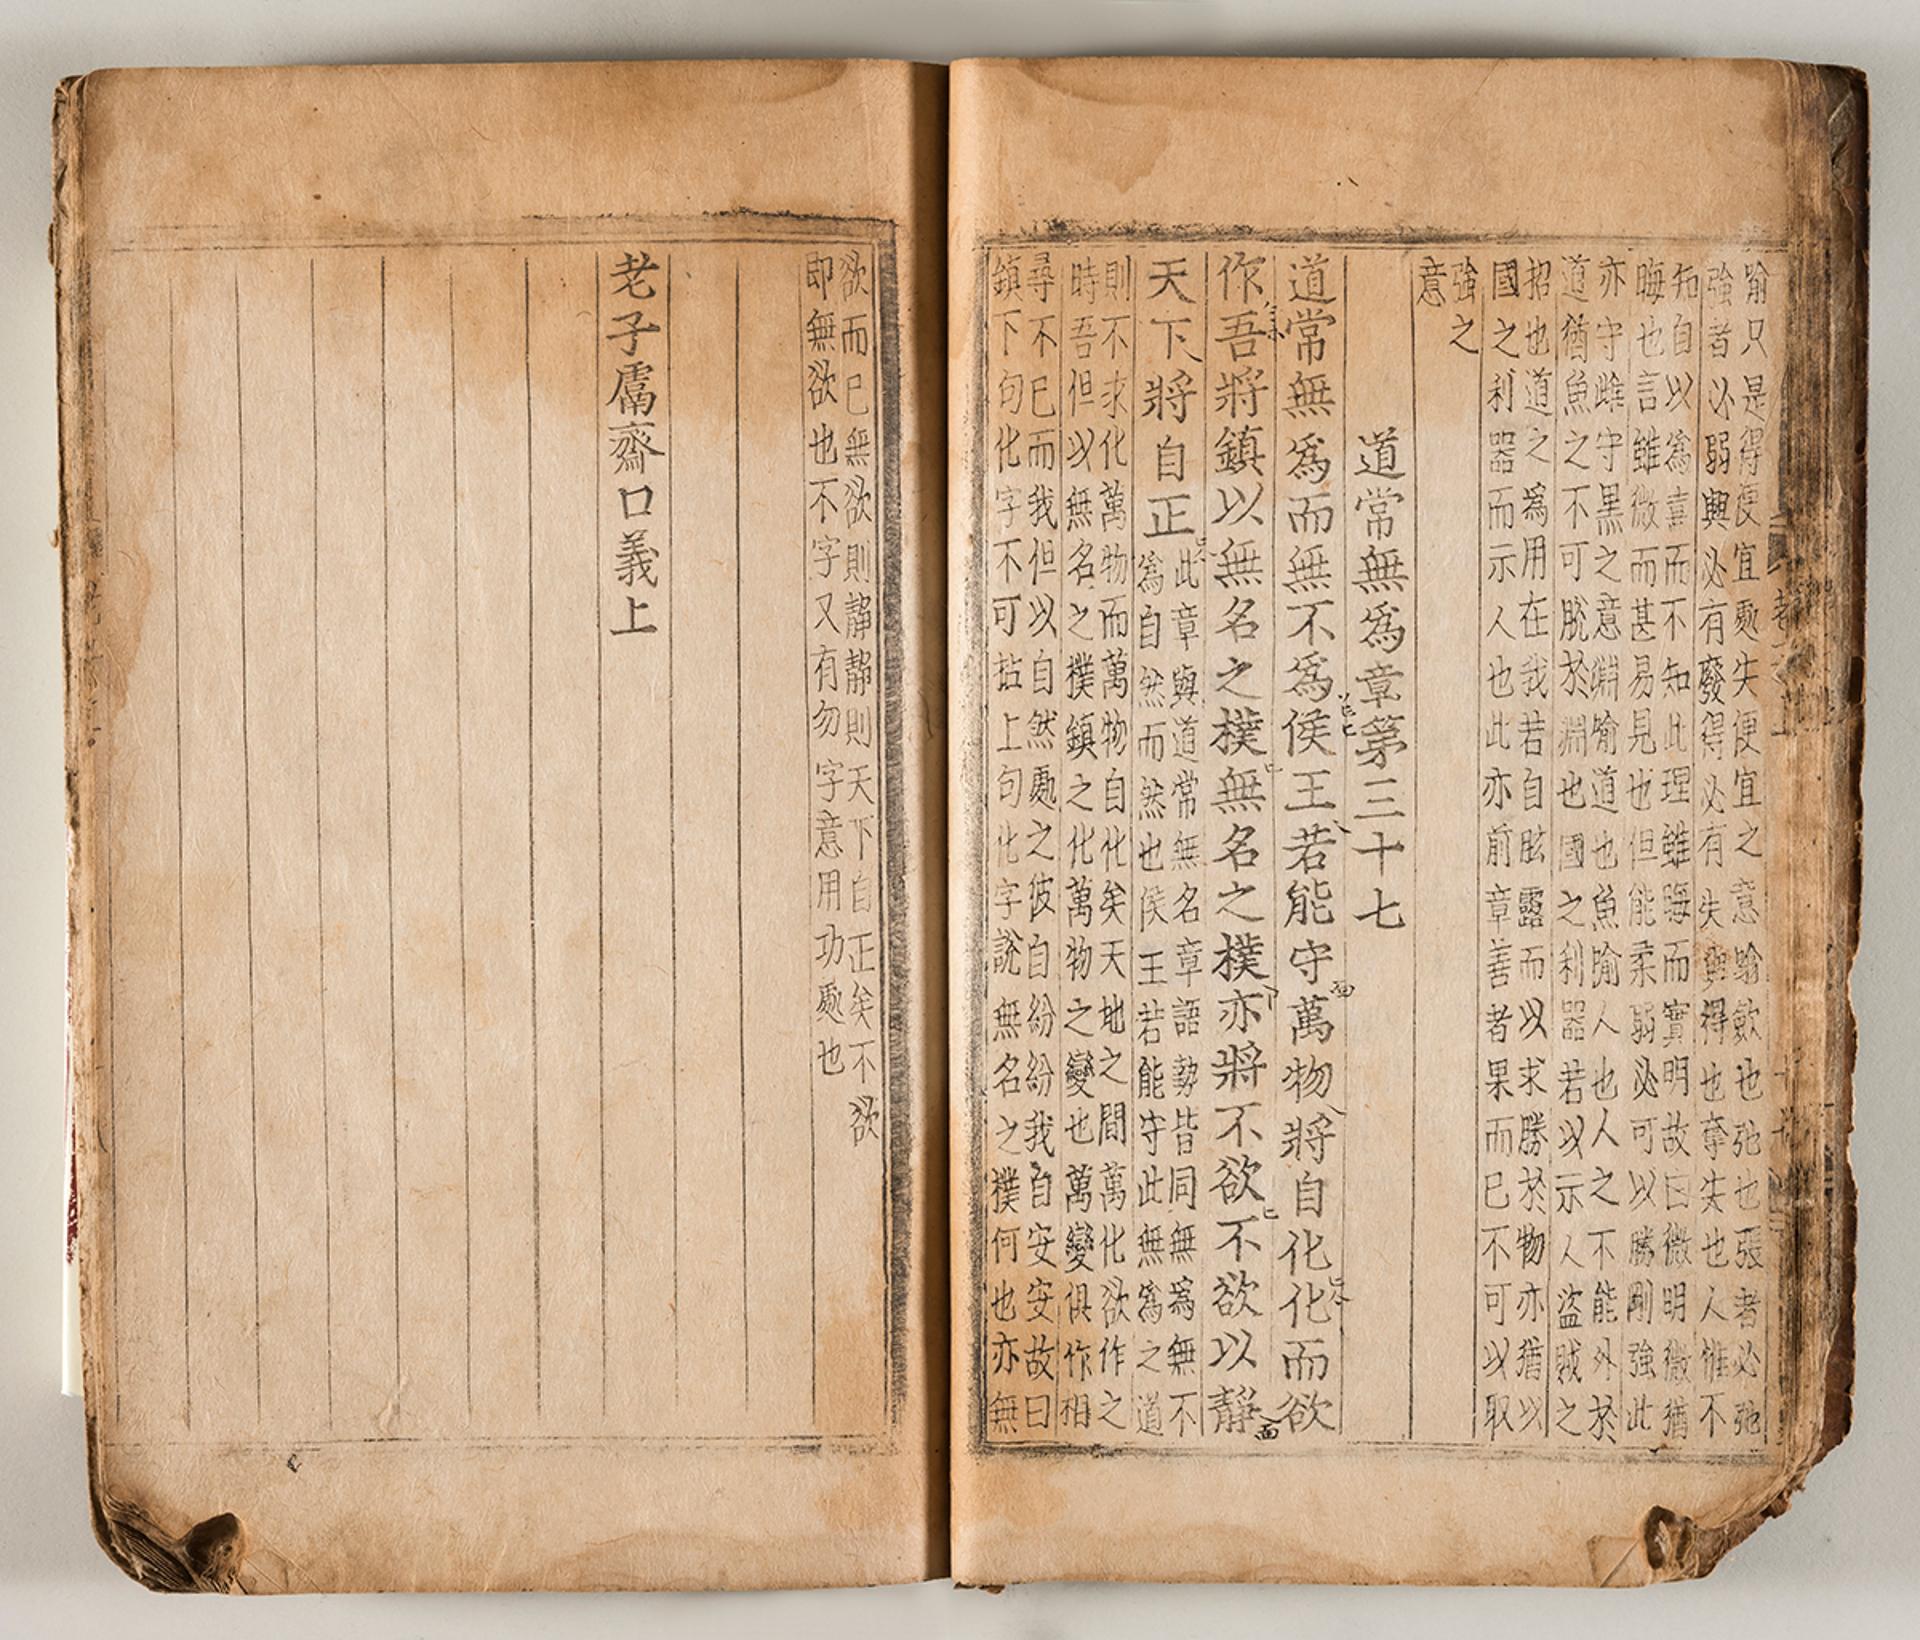 喻只是得便宜處失便宜之意喻歛也弛也張者必弛
強者必弱興必有廢得必有失與得也奪失也人惟不
知自以為喜而不知此理雖晦而實明故曰微明微猶
晦也言雖微而甚易見也但能柔弱必可以勝剛強此
亦守雌守黑之意淵喻道也魚喻人也人之不能外於
道猶魚之不可脫於淵也國之利器若以示人盜賊之
招也道之為用在我若自眩露而以求勝於物亦猶以
國之利器而示人也此亦前章善者果而已不可以取
強之
意
道常無為章第三十七
道常無為而無不為侯王若能守萬物將自化化而欲
作吾將鎮以無名之樸無名之樸亦將不欲不欲以靜
天下將自正
此章與道常無名章語勢皆同無為無不
為自然而然也侯王若能守此無為之道
則不求化萬物而萬物自化矣天地之間萬化欲作之
時吾但以無名之樸鎮之化萬物之變也萬變俱作相
尋不已而我但以自然處之彼自紛紛我自安安故曰
鎮下句化字不可拈上句化字說無名之樸何也亦無
欲而已無欲則靜靜則天下自正矣不欲
即無欲也不字又有勿字意用功處也
老子鬳齋口義上